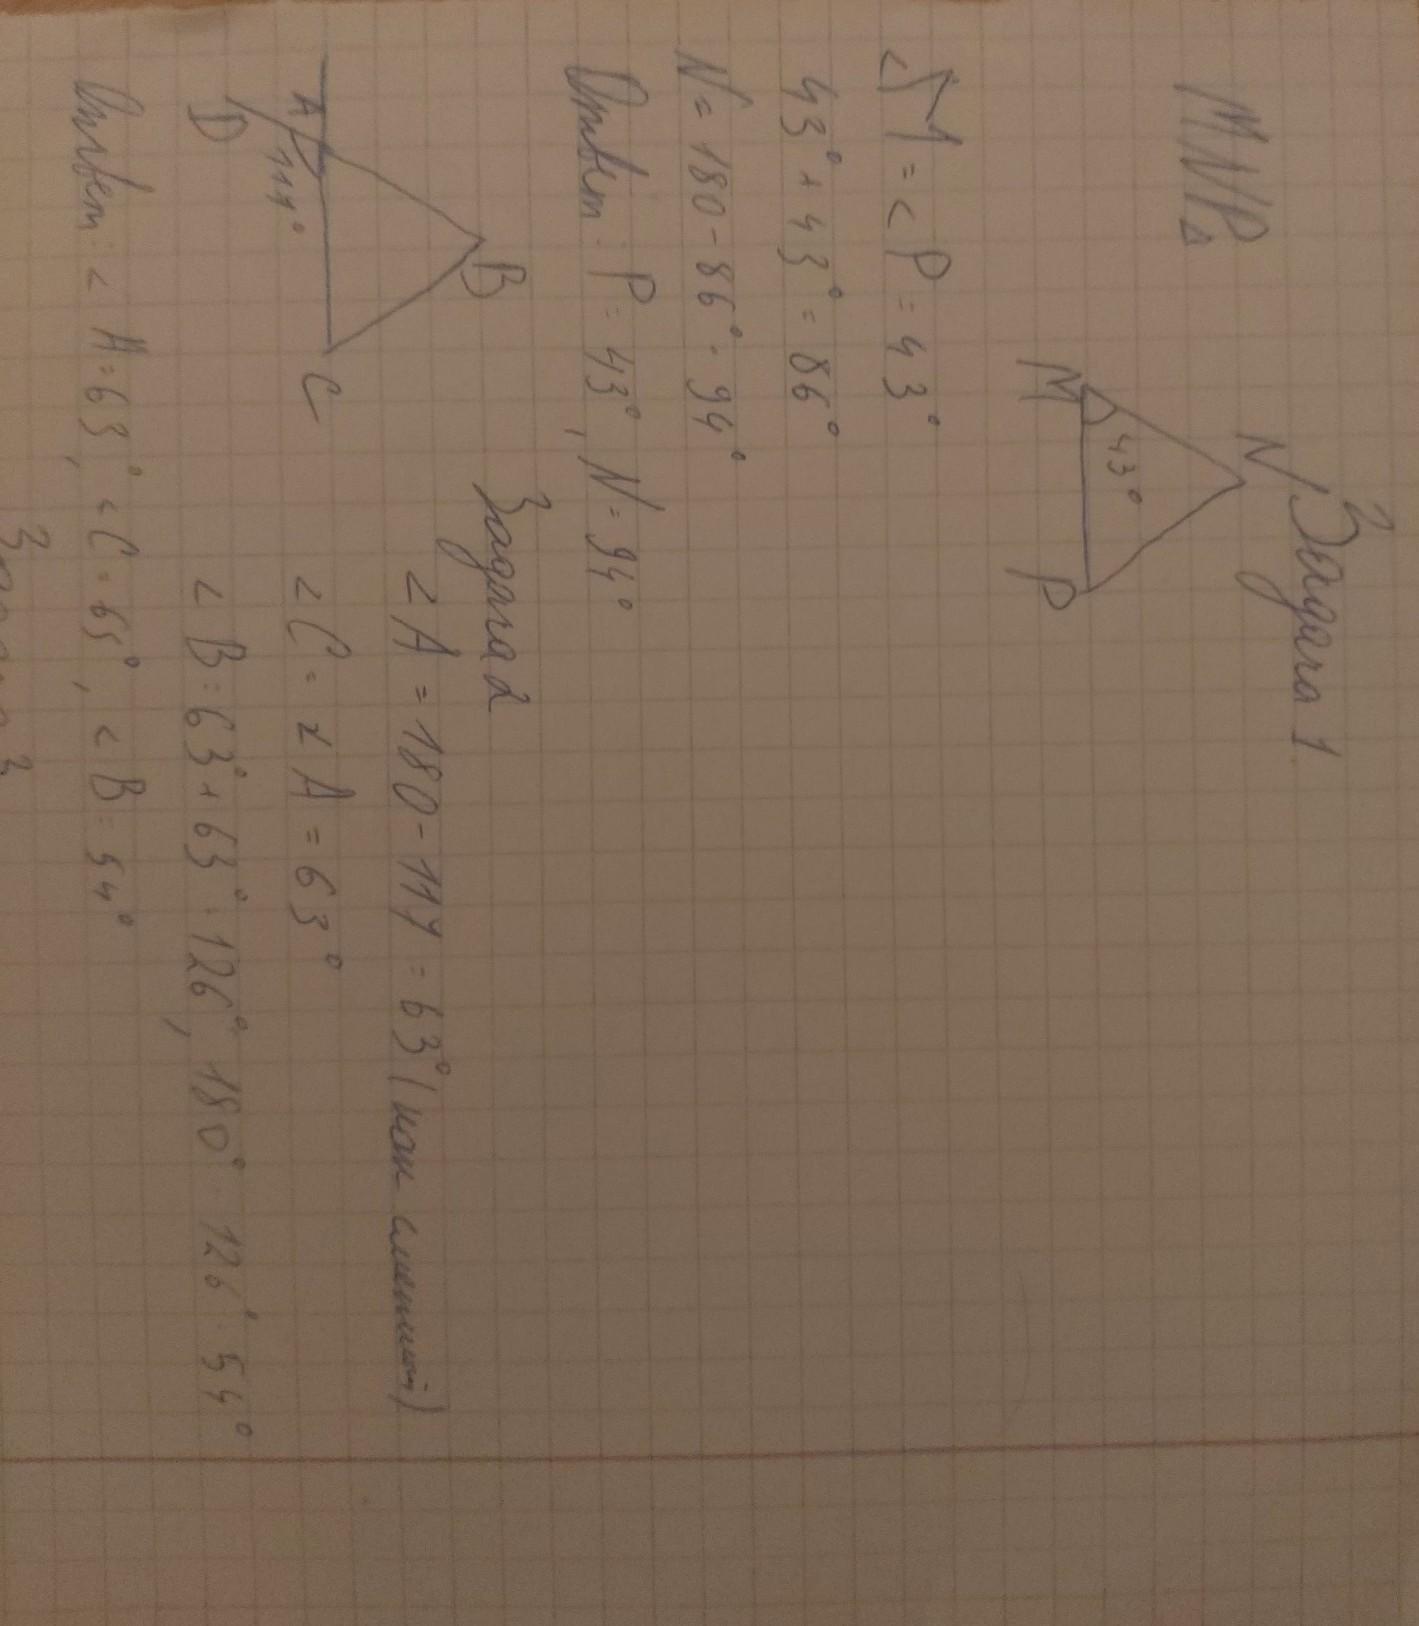 Задача 1
N
MNP
M
43°
P
<M = <P = 43°
43° + 43° = 86°
N = 180 - 86° = 94°
Ответ: P = 43°, N = 94°
Задача 2
B
A
117°
C
D
<A = 180 - 117 = 63° (как смежный)
<C = <A = 63°
<B = 63° + 63° = 126°, 180° - 126° = 54°
Ответ: <A = 63°, <C = 63°, <B = 54°
Задача 3